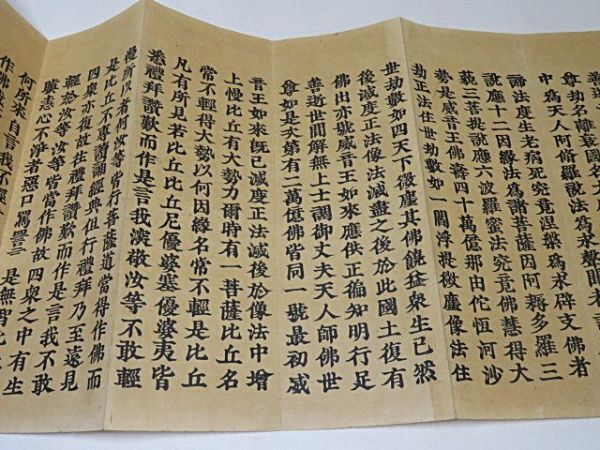 尊劫名離衰國名大
中爲天人阿脩羅說法爲求聲聞者說
諦法度生老病死究竟涅槃爲求辟支佛者
說應十二因緣法爲諸菩薩因阿耨多羅三
藐三菩提說應六波羅蜜法究竟佛慧得大
勢是威音王佛壽四十萬億那由佗恒河沙
劫正法住世劫數如一閻浮提微塵像法住
世劫數如四天下微塵其佛饒益衆生已然
後滅度正法像法滅盡之後於此國土復有
佛出亦號威音王如來應供正徧知明行足
善逝世間解無上士調御丈夫天人師佛世
尊如是次第有二萬億佛皆同一號最初威
音王如來旣已滅度正法滅後於像法中增
上慢比丘有大勢力爾時有一菩薩比丘名
常不輕得大勢以何因緣名常不輕是比丘
凡有所見若比丘比丘尼優婆塞優婆夷皆
悉禮拜讃歎而作是言我深敬汝等不敢輕
慢所以者何汝等皆行菩薩道當得作佛而
是比丘不專讀誦經典但行禮拜乃至遠見
四衆亦復故往禮拜讃歎而作是言我不敢
輕於汝等汝等皆當作佛故四衆之中有生
瞋恚心不淨者惡口罵詈言是無智比丘
何所來自言我不輕
作佛